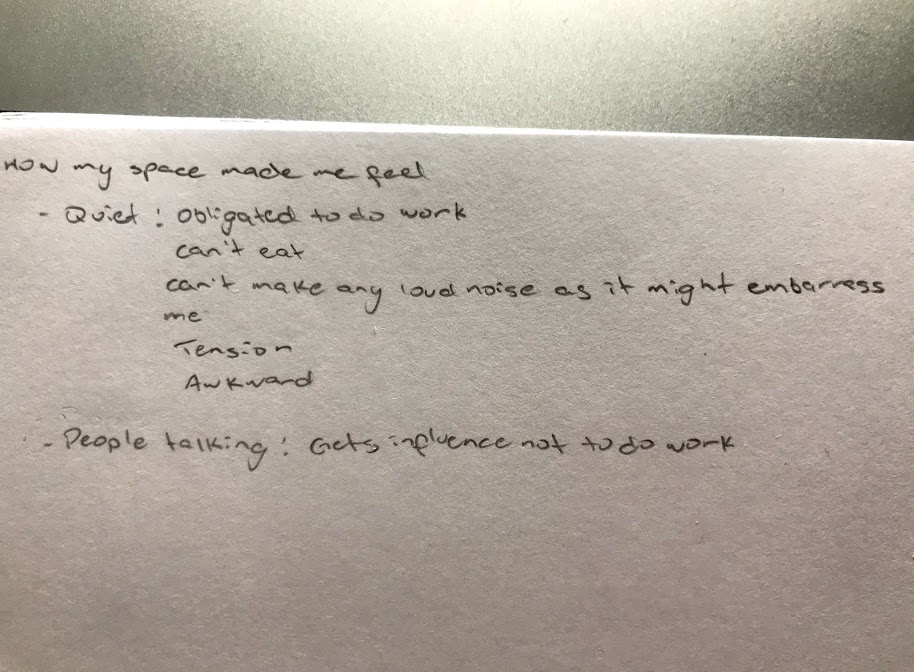 How my space made me feel
- Quiet : Obligated to do work
can't eat
can't make any loud noise as it might embarress
me
Tension
Awkward
- People talking : Gets influence not to do work